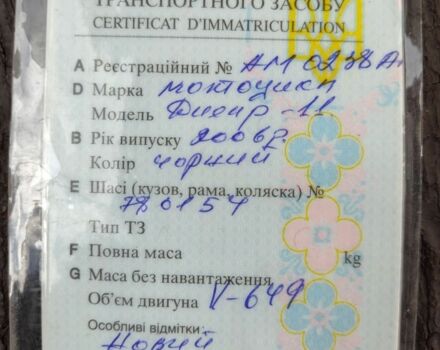 ТРАНСПОРТНОГО ЗАСОБУ
CERTIFICAT D'IMMATRICULATION
A Реєстраційний № АМ0238А
D Марка мотоцикл
Модель Днепр-11
B Рік випуску 2006р.
Колір чорний
E Шасі (кузов, рама, коляска) №
780154
Тип ТЗ
F Повна маса
kg
G Маса без навантаження
Об'єм двигуна V-649
Особливі відмітки
Новий